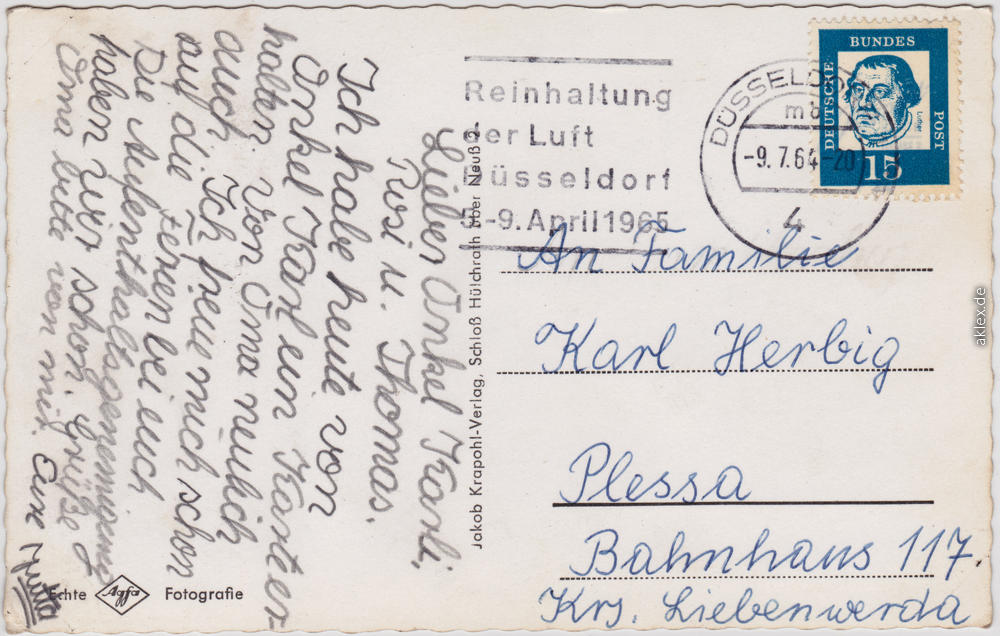 Reinhaltung
der Luft
Düsseldorf
5.-9. April 1965
DÜSSELDORF
mb
-9.7.64-20
4
DEUTSCHE
BUNDES
POST
Luther
15
Lieber Onkel Karli,
Rosi u. Thomas.
Ich habe heute von
Onkel Karl ein Karter
halten. Von Oma neulich
auch. Ich freue mich schon
auf die Ferien bei euch
Die Aufenthaltsgenemigung
haben wir schon. Grüße
Oma bitte von mir. Eure
Jutta
Jakob Krapohl-Verlag, Schloß Hülchrath über Neuß 2
An Familie
Karl Herbig
Plessa
Bahnhaus 117
Krs. Liebenwerda
Echte Agfa Fotografie
aklex.de